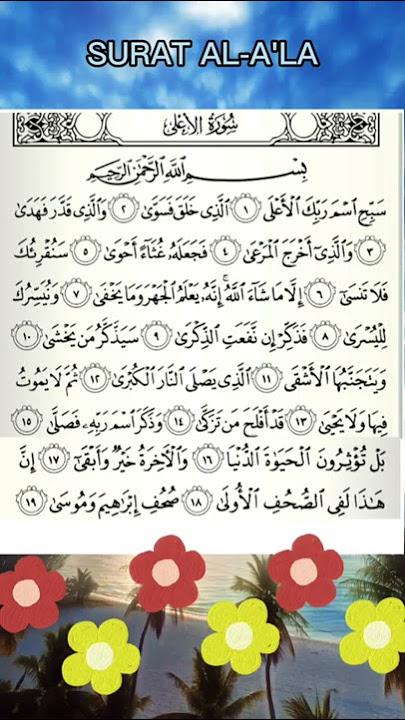 SURAT AL-A'LA
سُورَةُ الأَعْلَىٰ
بِسْمِ اللَّهِ الرَّحْمَٰنِ الرَّحِيمِ
سَبِّحِ اسْمَ رَبِّكَ الْأَعْلَى ١ الَّذِي خَلَقَ فَسَوَّىٰ ٢ وَالَّذِي قَدَّرَ فَهَدَىٰ
٣ وَالَّذِي أَخْرَجَ الْمَرْعَىٰ ٤ فَجَعَلَهُ غُثَاءً أَحْوَىٰ ٥ سَنُقْرِئُكَ
فَلَا تَنسَىٰ ٦ إِلَّا مَا شَاءَ اللَّهُ ۚ إِنَّهُ يَعْلَمُ الْجَهْرَ وَمَا يَخْفَىٰ ٧ وَنُيَسِّرُكَ
لِلْيُسْرَىٰ ٨ فَذَكِّرْ إِن نَّفَعَتِ الذِّكْرَىٰ ٩ سَيَذَّكَّرُ مَن يَخْشَىٰ ١٠
وَيَتَجَنَّبُهَا الْأَشْقَى ١١ الَّذِي يَصْلَى النَّارَ الْكُبْرَىٰ ١٢ ثُمَّ لَا يَمُوتُ
فِيهَا وَلَا يَحْيَىٰ ١٣ قَدْ أَفْلَحَ مَن تَزَكَّىٰ ١٤ وَذَكَرَ اسْمَ رَبِّهِ فَصَلَّىٰ ١٥
بَلْ تُؤْثِرُونَ الْحَيَاةَ الدُّنْيَا ١٦ وَالْآخِرَةُ خَيْرٌ وَأَبْقَىٰ ١٧ إِنَّ
هَٰذَا لَفِي الصُّحُفِ الْأُولَىٰ ١٨ صُحُفِ إِبْرَاهِيمَ وَمُوسَىٰ ١٩